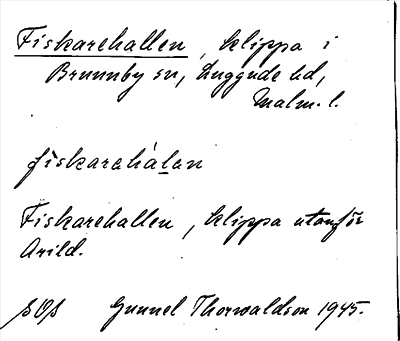 Fiskarehallen, klippa i
Brunnby sn, Luggude hd,
Malm. l.
fiskarehálan
Fiskarehallen, klippa utanför
Arild.
SOS Gunnel Thorwaldson 1945.